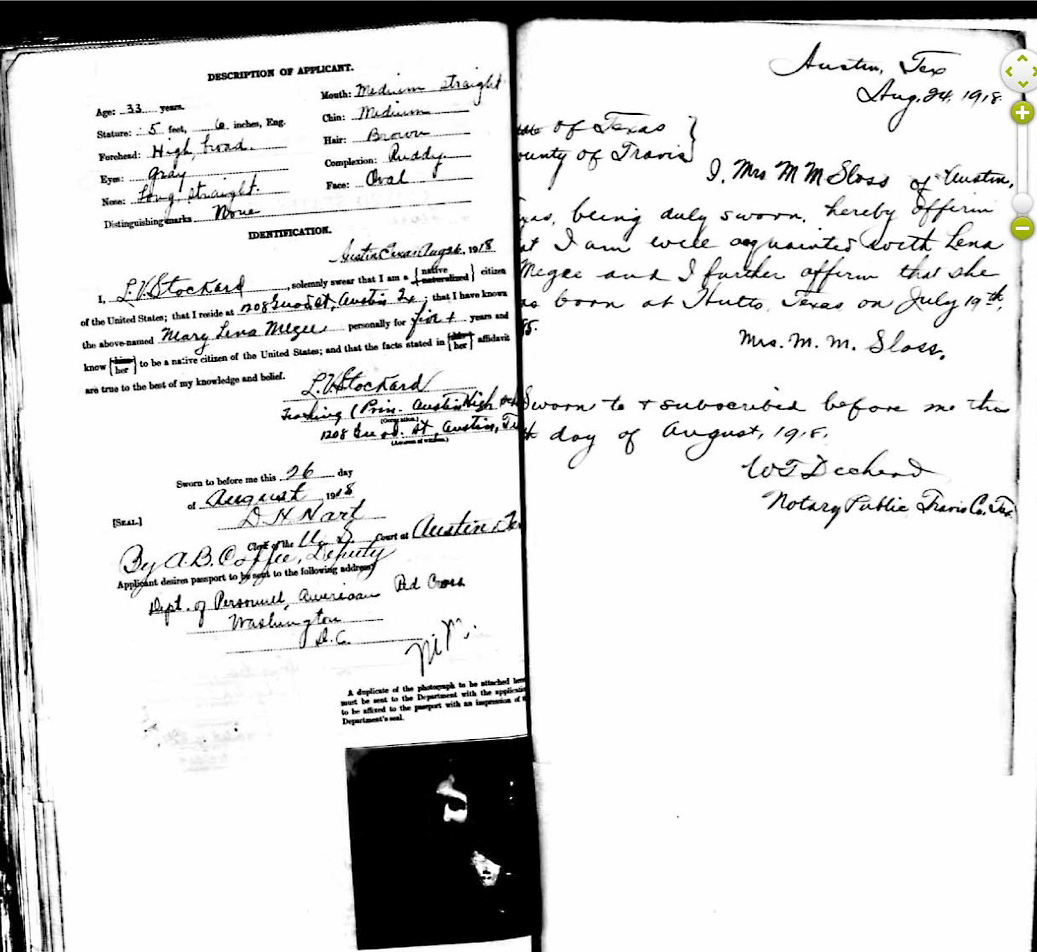 DESCRIPTION OF APPLICANT.
Age: 33 years.
Stature: 5 feet, 6 inches, Eng.
Forehead: High, broad.
Eyes: gray
Nose: Long, straight.
Distinguishing marks None
Mouth: Medium straight
Chin: Medium
Hair: Brown
Complexion: Ruddy
Face: Oval
IDENTIFICATION.
Austin Texas Aug 26, 1918
I, L.V. Stockard, solemnly swear that I am a {native naturalized} citizen
of the United States; that I reside at 1208 St, Austin Tx; that I have known
the above-named Mary Lena Megee personally for five + years and
know {him her} to be a native citizen of the United States; and that the facts stated in {his her} affidavit
are true to the best of my knowledge and belief.
L.V. Stockard
Teaching (Prin. Austin High
(Occupation.)
1208 St, Austin, Te
(Address of witness.)
Sworn to before me this 26 day
of August, 1918
[SEAL.]
D H Hart
Clerk of the U. S. Court at Austin, Te
By A.B. Coffee, Deputy
Applicant desires passport to be sent to the following address:
Dept. of Personnel, American Red Cross
Washington
D.C.
A duplicate of the photograph to be attached here
must be sent to the Department with the applicati
to be affixed to the passport with an impression of t
Department's seal.
Austin, Tex
Aug. 24, 1918.
of Texas }
ounty of Travis }
I, Mrs M M Sloss of Austin,
xas, being duly sworn, hereby affirm
at I am well acquainted with Lena
Megee and I further affirm that she
as born at Hutto, Texas on July 19th,
85.
Mrs. M. M. Sloss.
Sworn to + subscribed before me this
day of August, 1918.
Notary Public Travis Co. Tex